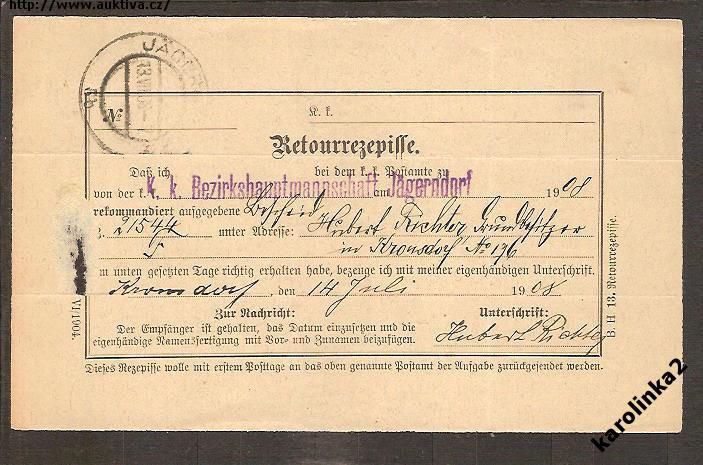 http://www.auktiva.cz/
JÄGER
13.VII.08
№
K. k.
Retourrezepisse.
Daß ich bei dem k. k. Postamte zu
von der k. K. k. Bezirkshauptmannschaft Jägerndorf am 1908
rekommandiert aufgegebene Bescheid
21544 unter Adresse: Hubert Richter Grundbesitzer
in Kronsdorf No 196
m unten gesetzten Tage richtig erhalten habe, bezeuge ich mit meiner eigenhändigen Unterschrift.
Kronsdorf, den 14 Juli 1908
Zur Nachricht: Unterschrift:
Der Empfänger ist gehalten, das Datum einzusetzen und die
eigenhändige Namensfertigung mit Vor- und Zunamen beizufügen. Hubert Richter
Dieses Rezepisse wolle mit erstem Posttage an das oben genannte Postamt der Aufgabe zurückgesendet werden.
VI/1904.
B. H 13. Retourrezepisse.
karolinka2